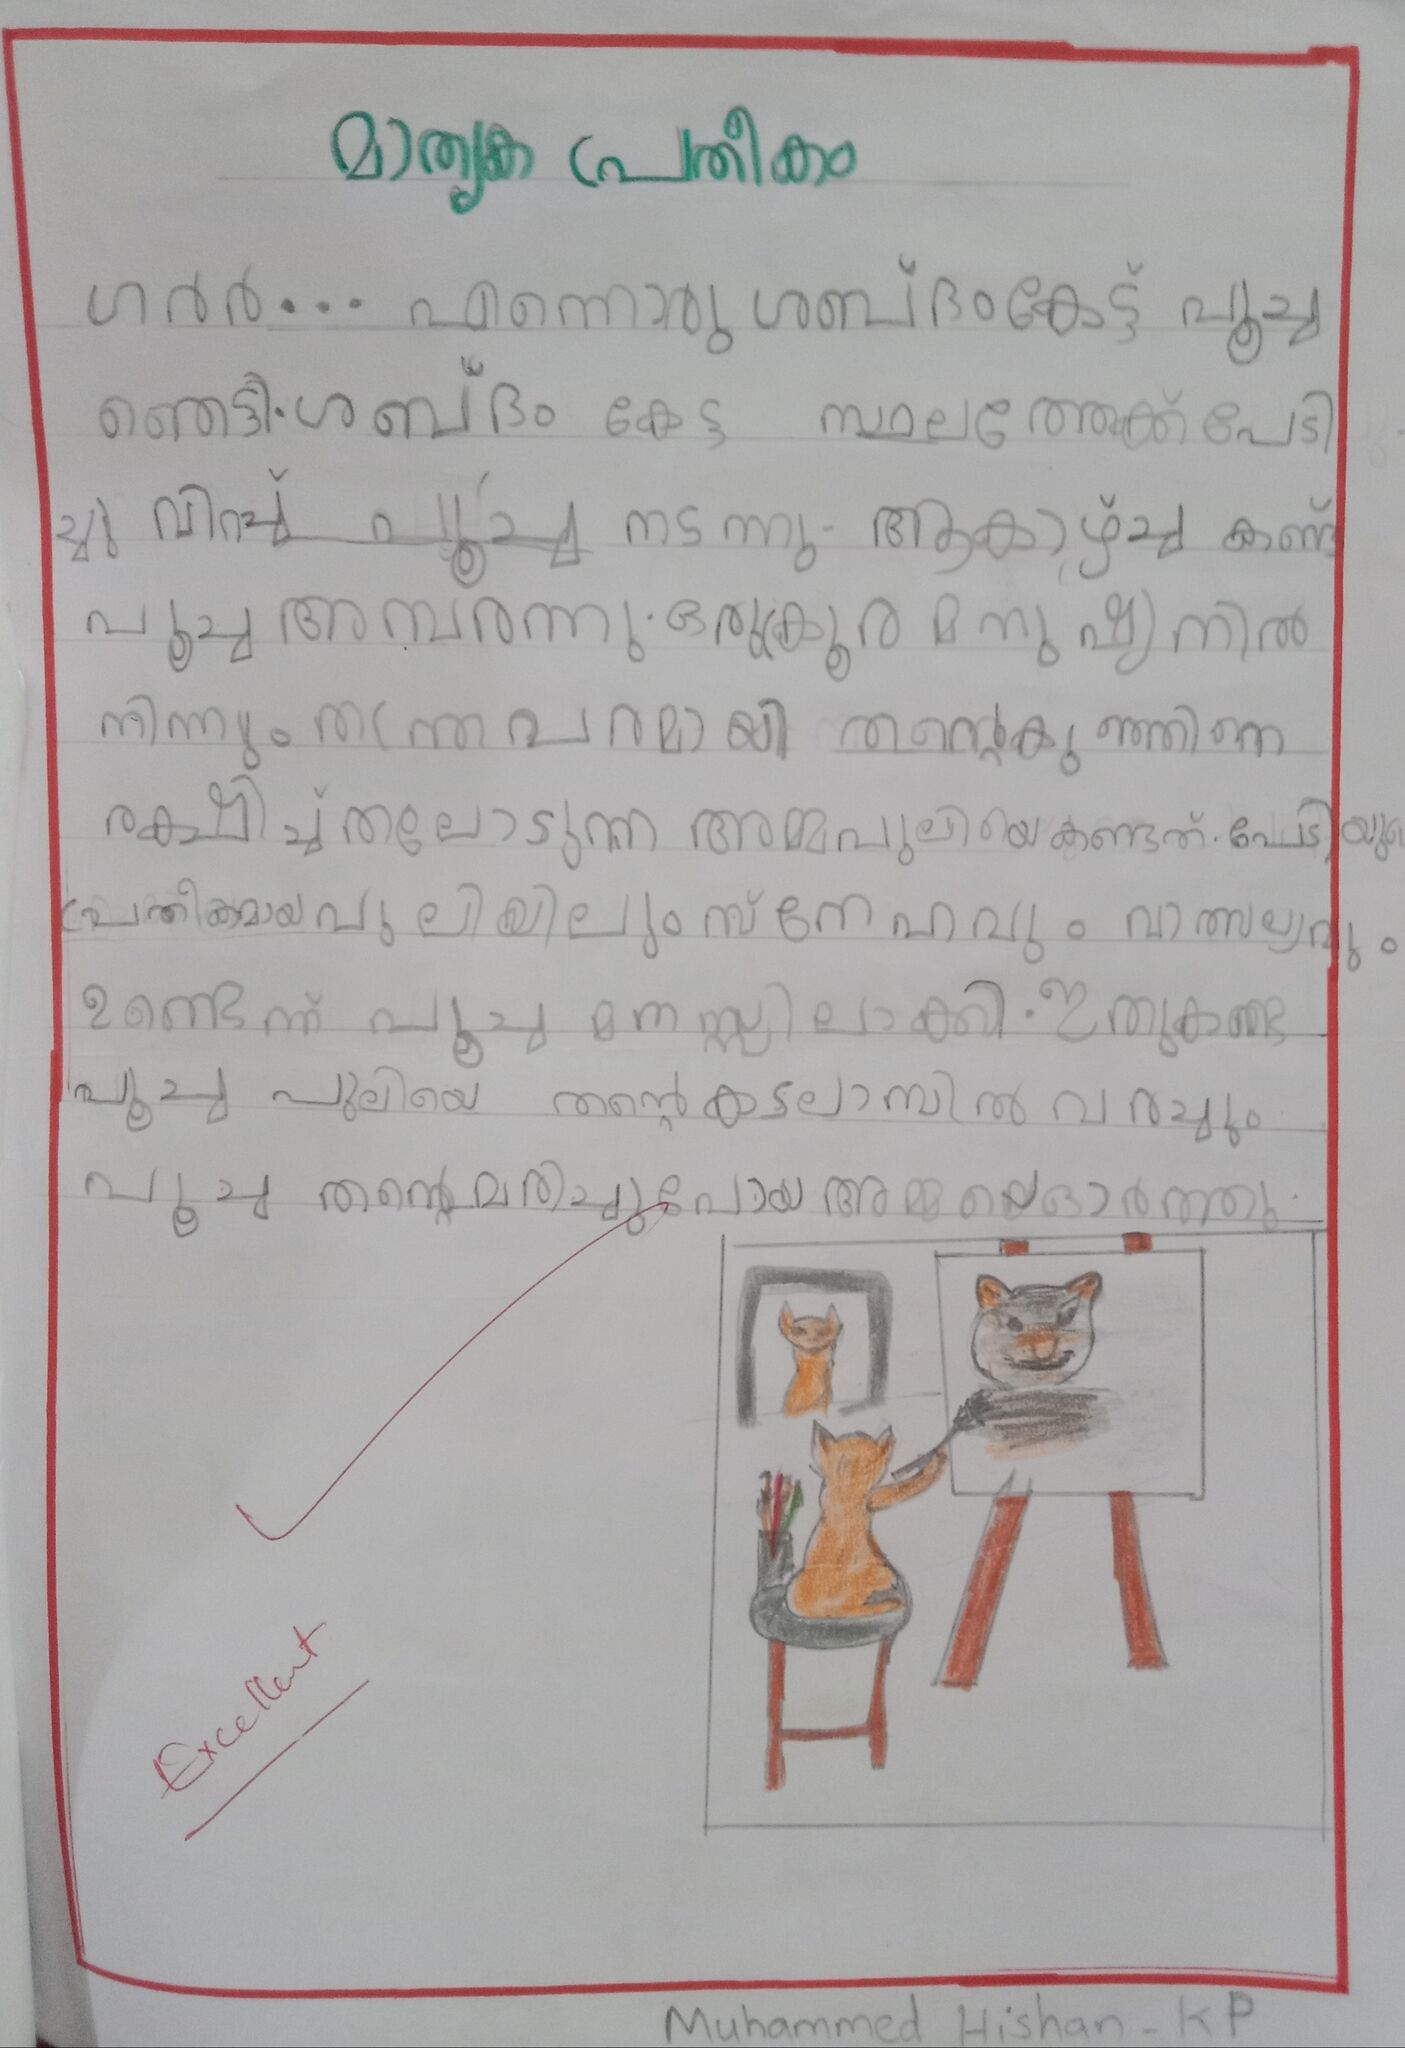 മാതൃക പ്രതീകം
ഗർർ... എന്നൊരു ശബ്ദം കേട്ട് പൂച്ച
ഞെട്ടി. ശബ്ദം കേട്ട സ്ഥലത്തേക്ക് പേടി
ച്ചു വിറച്ച് പൂച്ച നടന്നു. ആകാഴ്ച്ച കണ്ട്
പൂച്ച അമ്പരന്നു. ഒരു ക്രൂര മനുഷ്യനിൽ
നിന്നും തന്ത്രപരമായി തന്റെ കുഞ്ഞിനെ
രക്ഷിച്ച് തലോടുന്ന അമ്മപുലിയെ കണ്ടത്. പേടിയുടെ
പ്രതീകമായ പുലിയിലും സ്നേഹവും വാത്സല്യവും
ഉണ്ടെന്ന് പൂച്ച മനസ്സിലാക്കി. ഇതുകണ്ട
പൂച്ച പുലിയെ തന്റെ കടലാസിൽ വരച്ചും
പൂച്ച തന്റെ മരിച്ചുപോയ അമ്മയെ ഓർത്തു.
Excellent
Muhammed Hishan - KP